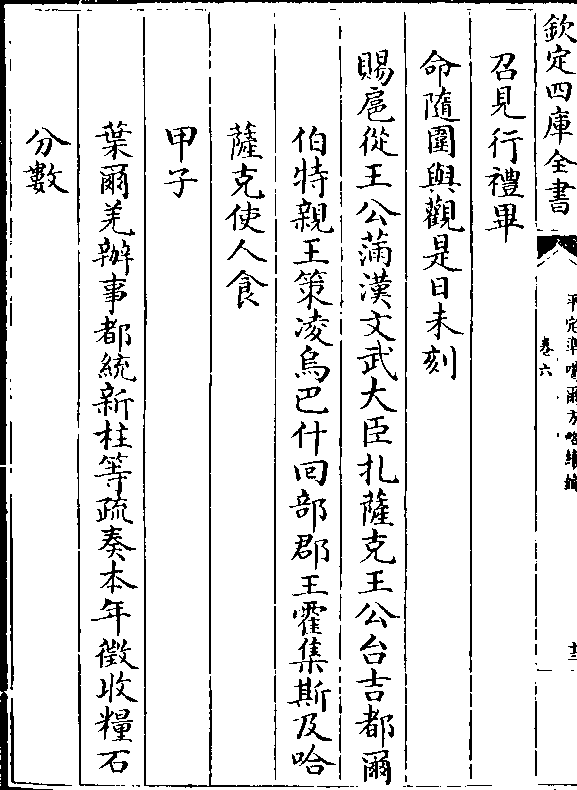 欽定四庫全書
平定準噶爾方略續編
卷六
十二
召見行禮畢
命隨圍與觀是日未刻
賜扈從王公滿漢文武大臣扎薩克王公台吉都爾
伯特親王策凌烏巴什回部郡王霍集斯及哈
薩克使人食
甲子
葉爾羌辦事都統新柱等疏奏本年徵收糧石
分數